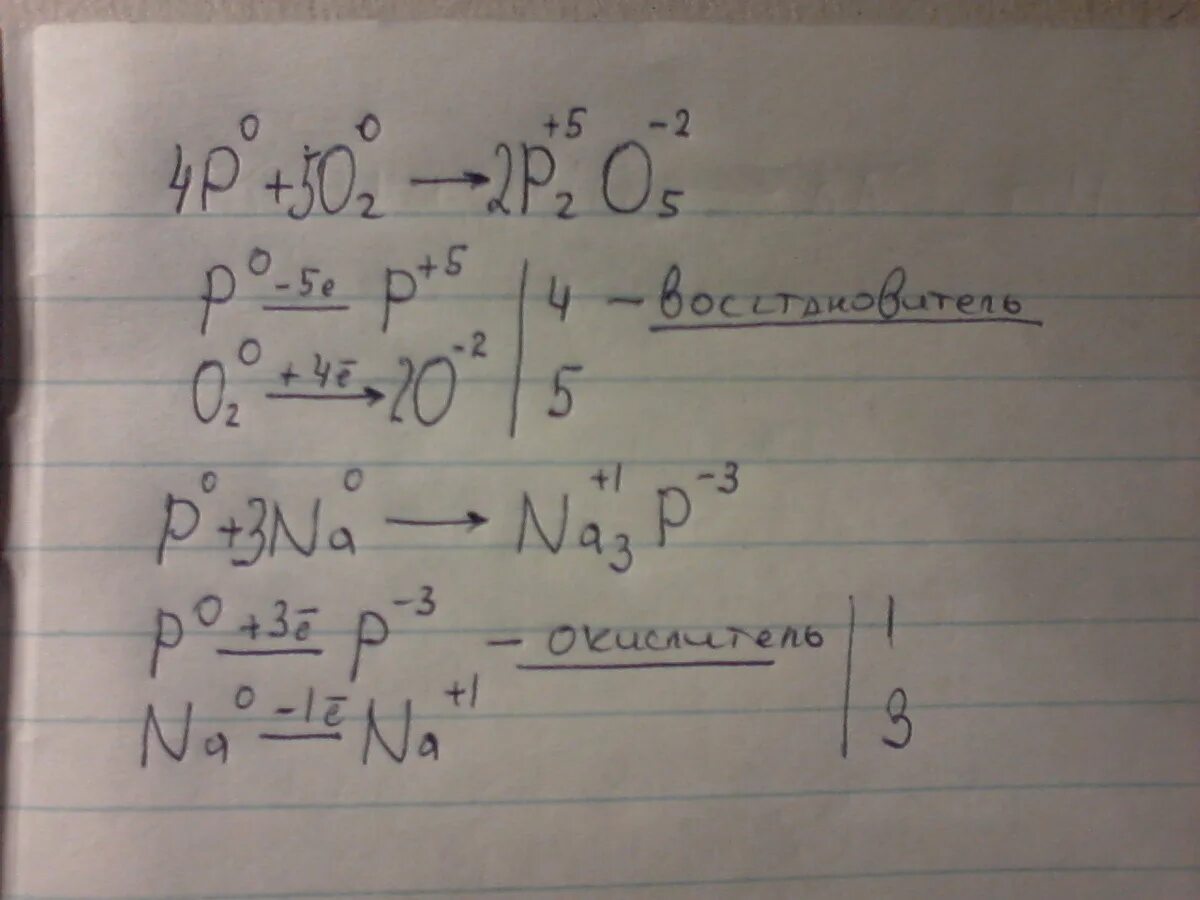 4P⁰ + 5O₂⁰ → 2P₂⁺⁵O₅⁻²
P⁰ −5e P⁺⁵ | 4 – восстановитель
O₂⁰ +4ē → 2O⁻² | 5
P⁰ + 3Na⁰ → Na₃⁺¹P⁻³
P⁰ +3ē P⁻³ – окислитель | 1
Na⁰ −1ē Na⁺¹ | 3